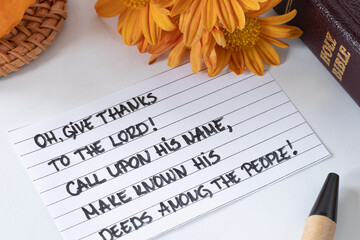 OH, GIVE THANKS
TO THE LORD!
CALL UPON HIS NAME,
MAKE KNOWN HIS
DEEDS AMONG THE PEOPLE!
HOLY
BIBLE